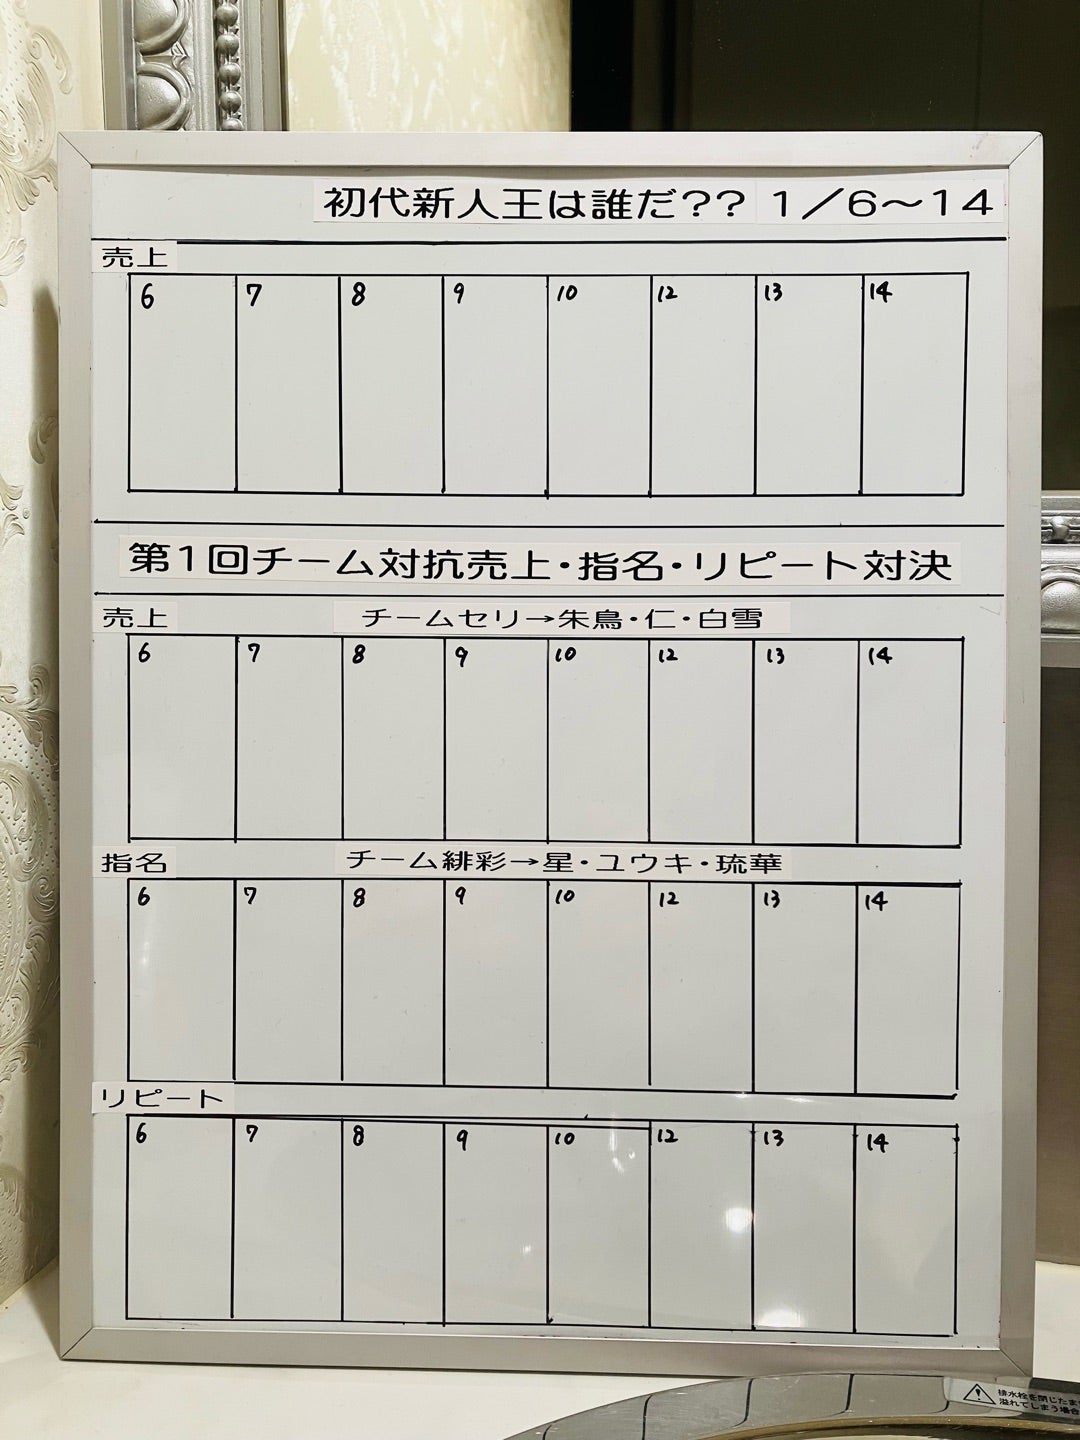 初代新人王は誰だ?? 1/6～14
売上
6 7 8 9 10 12 13 14
第1回チーム対抗売上・指名・リピート対決
売上 チームセリ→朱鳥・仁・白雪
6 7 8 9 10 12 13 14
指名 チーム緋彩→星・ユウキ・琉華
6 7 8 9 10 12 13 14
リピート
6 7 8 9 10 12 13 14
排水栓を閉じたま
溢れてしまう場合